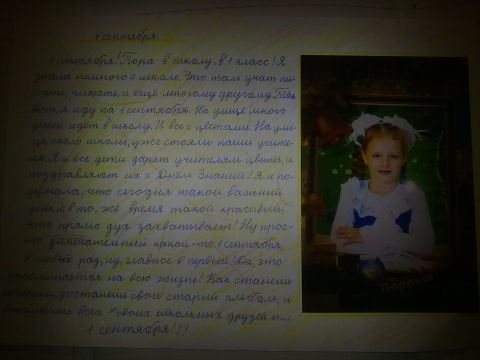 1 сентября.
1 сентября! Пора в школу, в 1 класс! Я
знала немного о школе. Что там учат пи-
сать, читать, и ещё многому другому. Так
вот, я иду на 1 сентября. На улице много
детей идёт в школу. И все с цветами. На ули-
це около школы, уже стояли наши учите-
ля. Я и все дети дарят учителям цветы, и
поздравляют их с Днём Знаний! Я и по-
думала, что сегодня такой важный
день, и в то же время такой красивый,
что прямо дух захватывает! Ну прос-
то замечательный какой-то. 1 сентября,
в первый раз, ну, главное в первый! Да, это
запоминается на всю жизнь! Как станешь
достанешь свой старый альбом, и
вспомнишь всех своих школьных друзей и...
1 сентября!!!